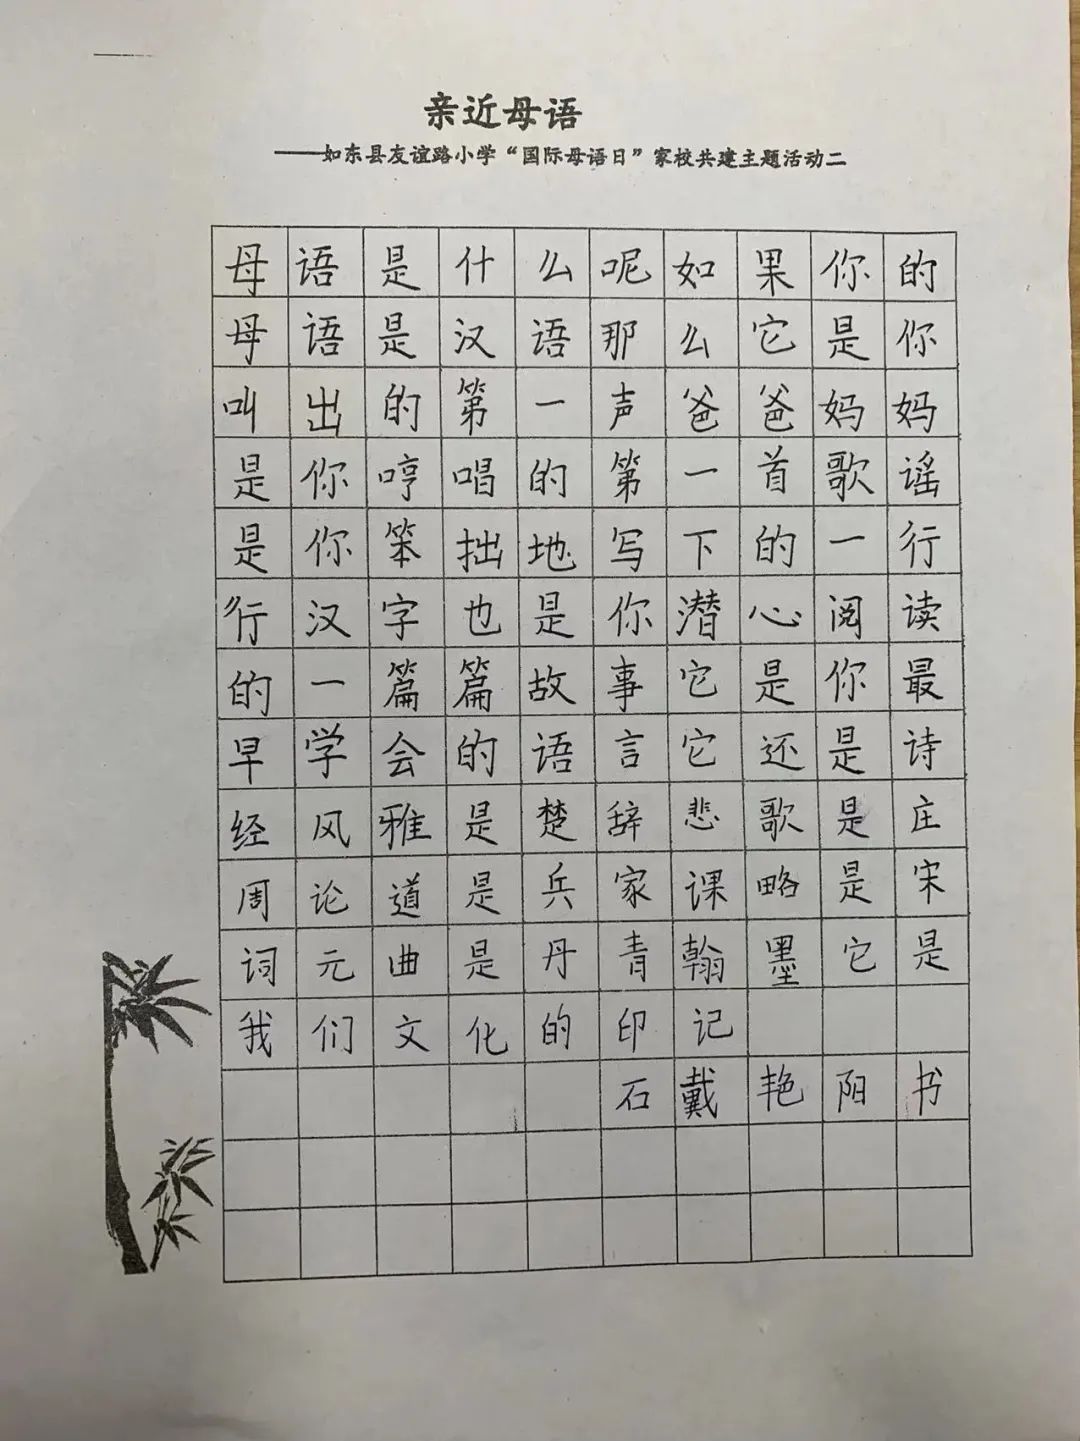 亲近母语
——如东县友谊路小学“国际母语日”家校共建主题活动二
母语是什么呢如果你的
母语是汉语那么它是你
叫出的第一声爸爸妈妈
是你哼唱的第一首歌谣
是你笨拙地写下的一行
行汉字也是你潜心阅读
的一篇篇故事它是你最
早学会的语言它还是诗
经风雅是楚辞悲歌是庄
周论道是兵家课略是宋
词元曲是丹青翰墨它是
我们文化的印记
石戴艳阳书